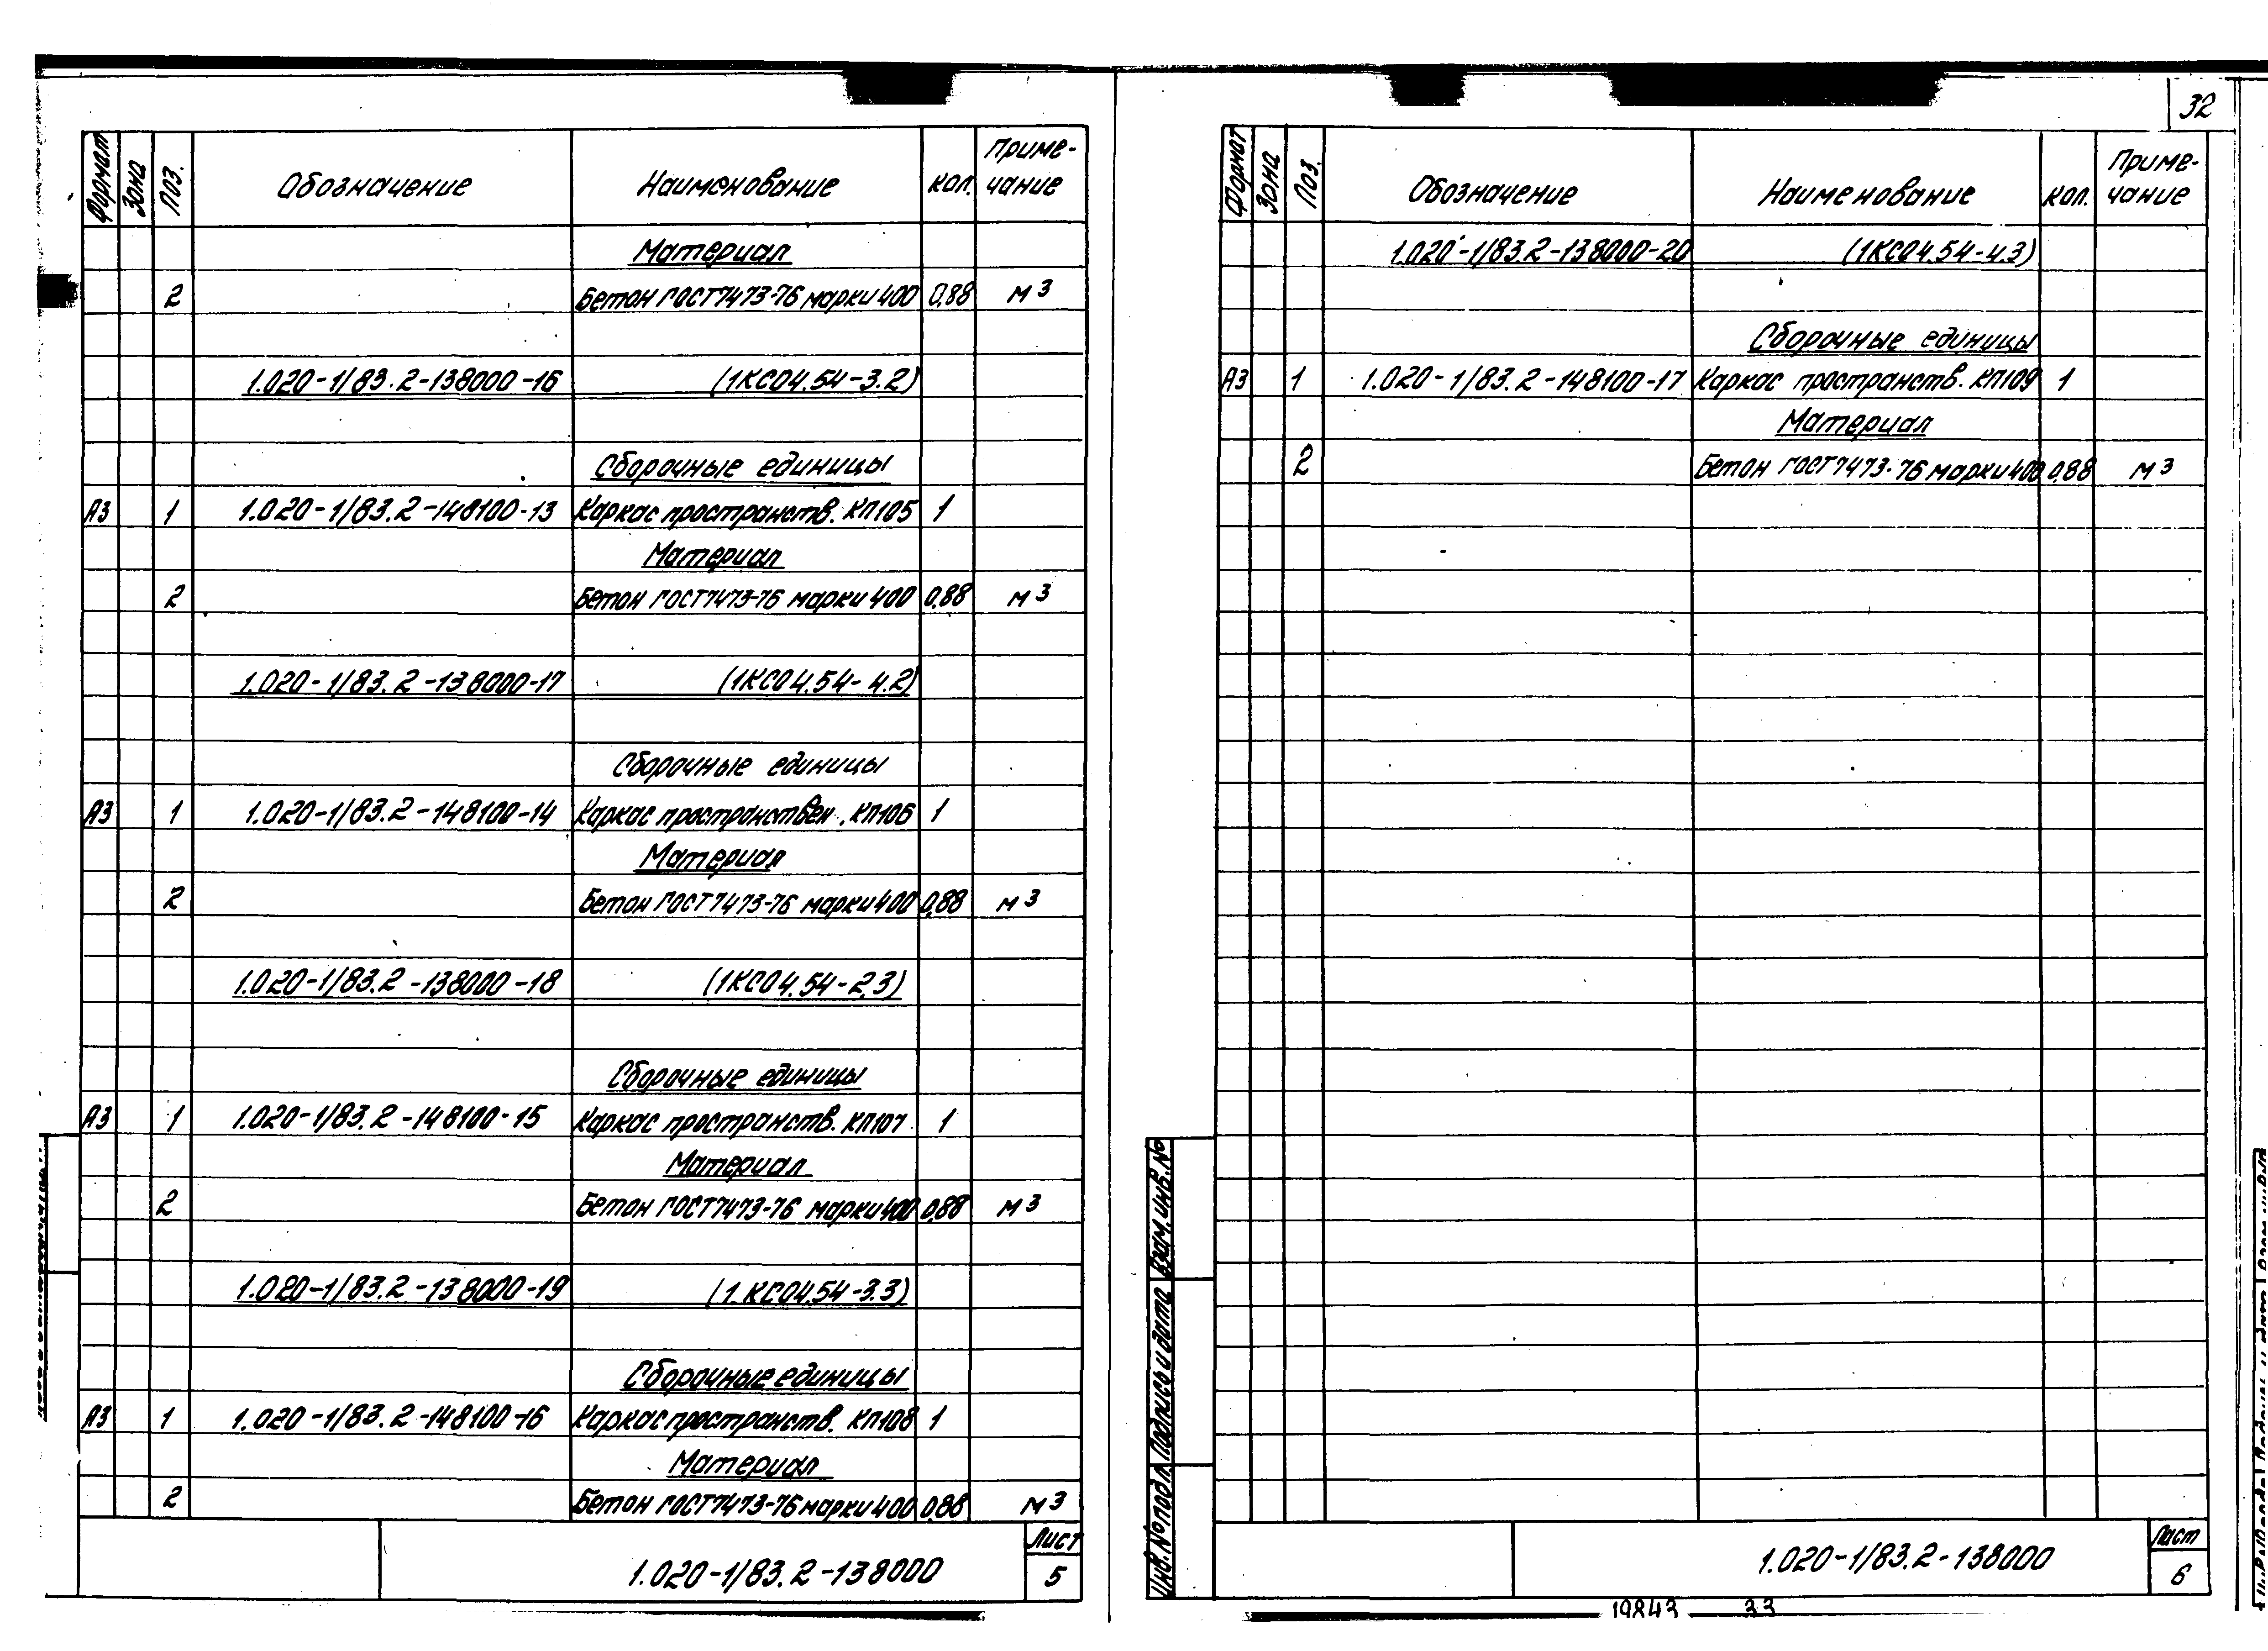 32
Формат Зона Поз. Обозначение Наименование Кол. Приме-чание
Материал
2 Бетон ГОСТ7473-76 марки 400 0,88 м3
1.020-1/83.2-138000-16 (1КС04.54-3.2)
Сборочные единицы
А3 1 1.020-1/83.2-148100-13 Каркас пространств. КП105 1
Материал
2 Бетон ГОСТ7473-76 марки 400 0,88 м3
1.020-1/83.2-138000-17 (1КС04.54-4.2)
Сборочные единицы
А3 1 1.020-1/83.2-148100-14 Каркас пространствен. КП106 1
Материал
2 Бетон ГОСТ7473-76 марки 400 0,88 м3
1.020-1/83.2-138000-18 (1КС04.54-2.3)
Сборочные единицы
А3 1 1.020-1/83.2-148100-15 Каркас пространств. КП107 1
Материал
2 Бетон ГОСТ7473-76 марки 400 0,88 м3
1.020-1/83.2-138000-19 (1.КС04.54-3.3)
Сборочные единицы
А3 1 1.020-1/83.2-148100-16 Каркас пространств. КП108 1
Материал
2 Бетон ГОСТ7473-76 марки 400 0,88 м3
1.020-1/83.2-138000
Лист
5
Формат Зона Поз. Обозначение Наименование Кол. Приме-чание
1.020-1/83.2-138000-20 (1КС04.54-4.3)
Сборочные единицы
А3 1 1.020-1/83.2-148100-17 Каркас пространств. КП109 1
Материал
2 Бетон ГОСТ7473-76 марки 400 0,88 м3
Инв.№подл. Подпись и дата Взам.инв.№
1.020-1/83.2-138000
Лист
6
19843 33